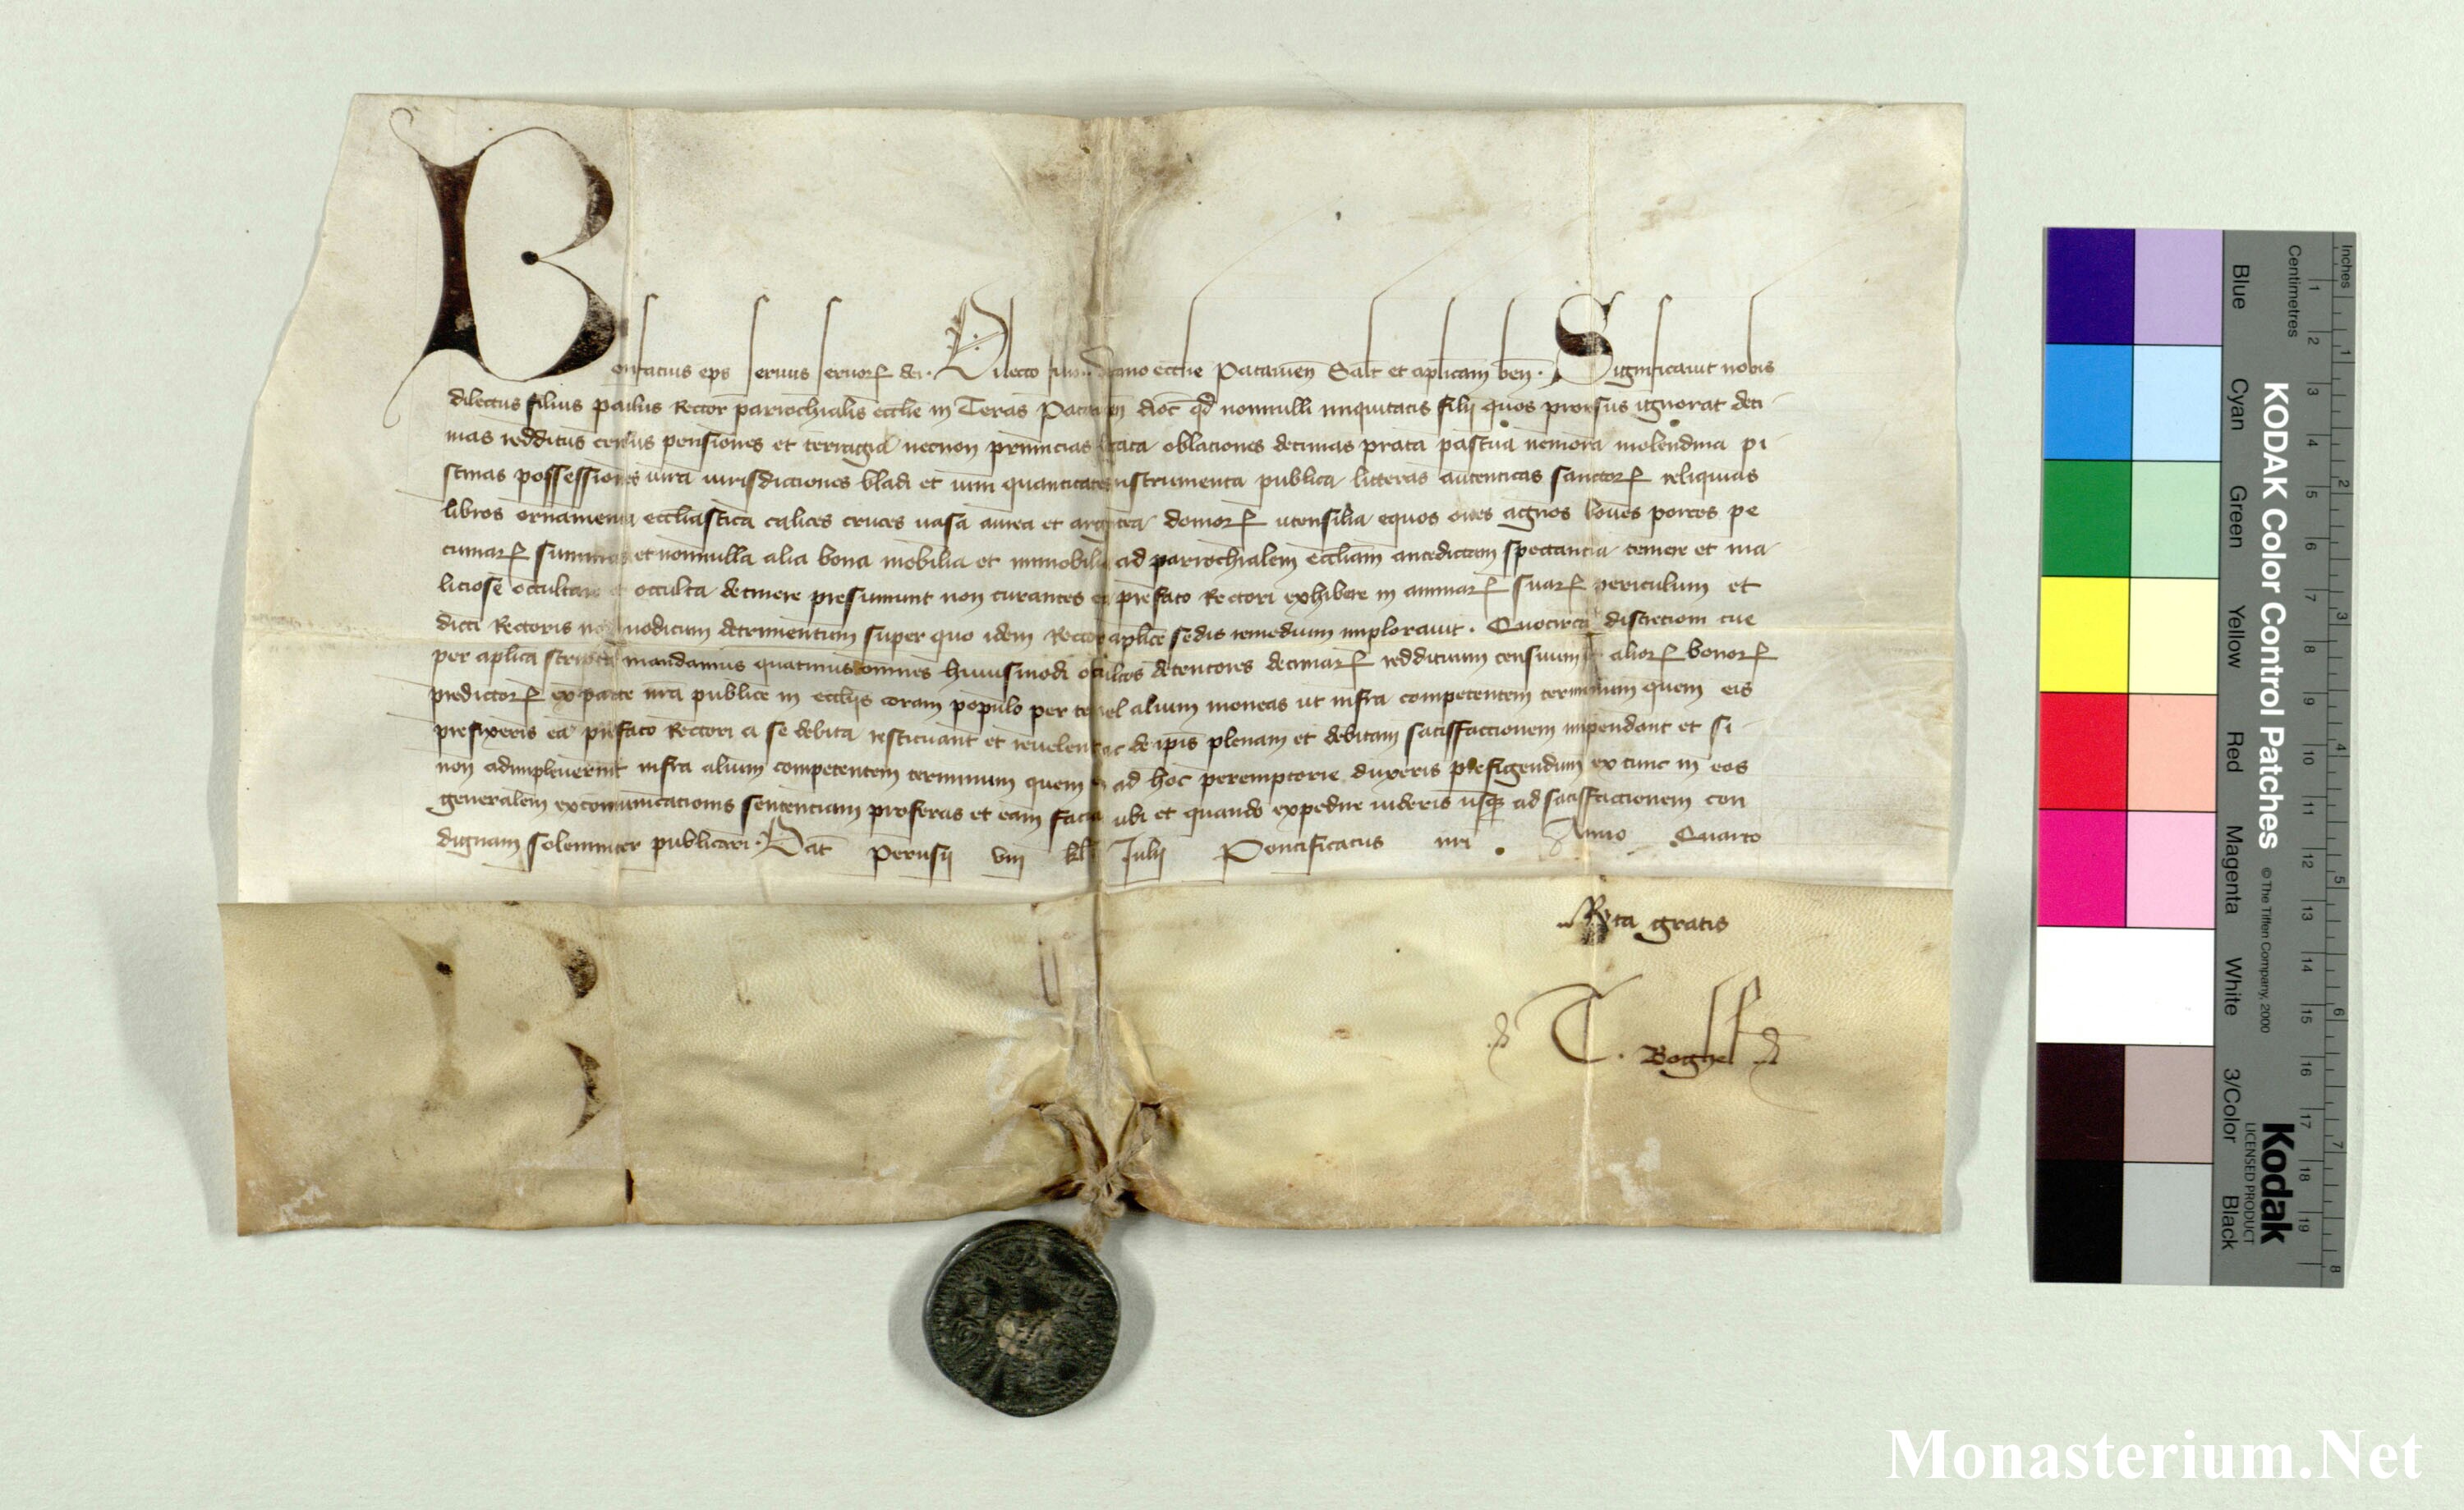 Bonifatius eps seruus seruorꝝ dei. Dilecto filio Decano ecclie Patauien̄ Salt̄ et aplicam ben̄. Significauit nobis
dilectus filius paulus Rector parrochialis ecclie in Teras Patauien̄ dioc̄ qd̄ nonnulli iniquitatis filij quos prorsus ignorat deci
mas redditus census pensiones et terragia necnon primicias legata oblationes decimas prata pascua nemora molendina pi
scinas possessiones iura iurisdictiones bladi et uini quantitates instrumenta publica litteras autenticas sanctorꝝ reliquias
libros ornamenta eccliastica calices cruces uasa aurea et argentea domorꝝ utensilia equos oues agnos boues porcos pe
cuniarꝝ summas et nonnulla alia bona mobilia et immobilia ad parrochialem eccliam antedictam spectantia temere et ma
liciose occultare et occulta detinere presumunt non curantes ea prefato Rectori exhibere in animarꝝ suarꝝ periculum et
dicti Rectoris non modicum detrimentum super quo idem Rector aplice sedis remedium implorauit. Quocirca discretioni tue
per aplica scripta mandamus quatinus omnes huiusmodi occultos detentores decimarꝝ reddituum censuum et aliorꝝ bonorꝝ
predictorꝝ ex parte nra publice in ecclijs coram populo per te uel alium moneas ut infra competentem terminum quem eis
prefixeris ea prefato Rectori a se debita restituant et reuelent ac de ipis plenam et debitam satisfactionem impendant et si
non adimpleuerint infra alium competentem terminum quem eis ad hoc peremptorie duxeris prefigendum extunc in eos
generalem excomunicationis sententiam proferas et eam facias ubi et quando expedire uideris usqꝫ ad satisfactionem con
dignam solemniter publicari. Dat̄ Perusij viij kl̄ Julij Pontificatus nri Anno Quarto
Rta gratis
T. Bogel
KODAK Color Control Patches
© The Tiffen Company, 2000
Kodak
LICENSED PRODUCT
Blue Cyan Green Yellow Red Magenta White 3/Color Black
Centimetres 1 2 3 4 5 6 7 8 9 10 11 12 13 14 15 16 17 18 19
Inches 1 2 3 4 5 6 7 8
Monasterium.Net